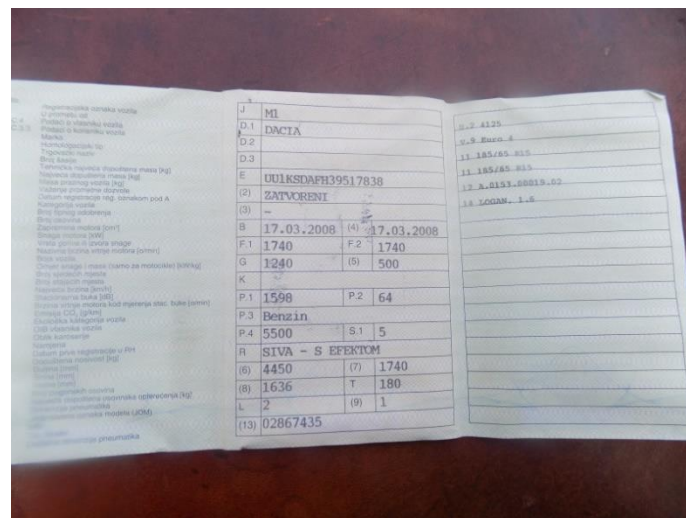 Registracijska oznaka vozila
C.4 Podaci o vlasniku vozila
C.3.5 Podaci o korisniku vozila
Marka
Homologacijski tip
Trgovački naziv
Broj šasije
Tehnička najveća dopuštena masa [kg]
Najveća dopuštena masa [kg]
Masa praznog vozila [kg]
Važenje prometne dozvole
Datum registracije reg. oznakom pod A
Kategorija vozila
Broj tipnog odobrenja
Broj osovina
Zapremina motora [cm³]
Snaga motora [kW]
Vrsta goriva ili izvora snage
Nazivna brzina vrtnje motora [o/min]
Boja vozila
Omjer snage i mase (samo za motocikle) [kW/kg]
Broj sjedećih mjesta
Broj stajaćih mjesta
Najveća brzina [km/h]
Stacionarna buka [dB]
Brzina vrtnje motora kod mjerenja stac. buke [o/min]
Emisija CO₂ [g/km]
Ekološka kategorija vozila
Oblik karoserije
Namjena
Datum prve registracije u RH
Dopuštena nosivost [kg]
Dužina [mm]
Širina [mm]
Visina [mm]
J M1
D.1 DACIA
D.2
D.3
E UU1KSDAFH39517838
(2) ZATVORENI
(3) -
B 17.03.2008 (4) 17.03.2008
F.1 1740 F.2 1740
G 1240 (5) 500
K
P.1 1598 P.2 64
P.3 Benzin
P.4 5500 S.1 5
R SIVA - S EFEKTOM
(6) 4450 (7) 1740
(8) 1636 T 180
L 2 (9) 1
(13) 02867435
U.2 4125
V.9 Euro 4
11 185/65 R15
11 185/65 R15
12 A.0153.00019.02
14 LOGAN, 1.6